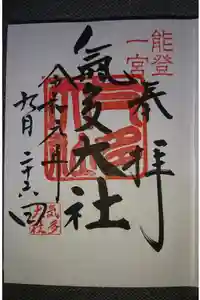 能登
一宮
奉拝
氣多大社
令和元年
九月二十六日
氣多大社